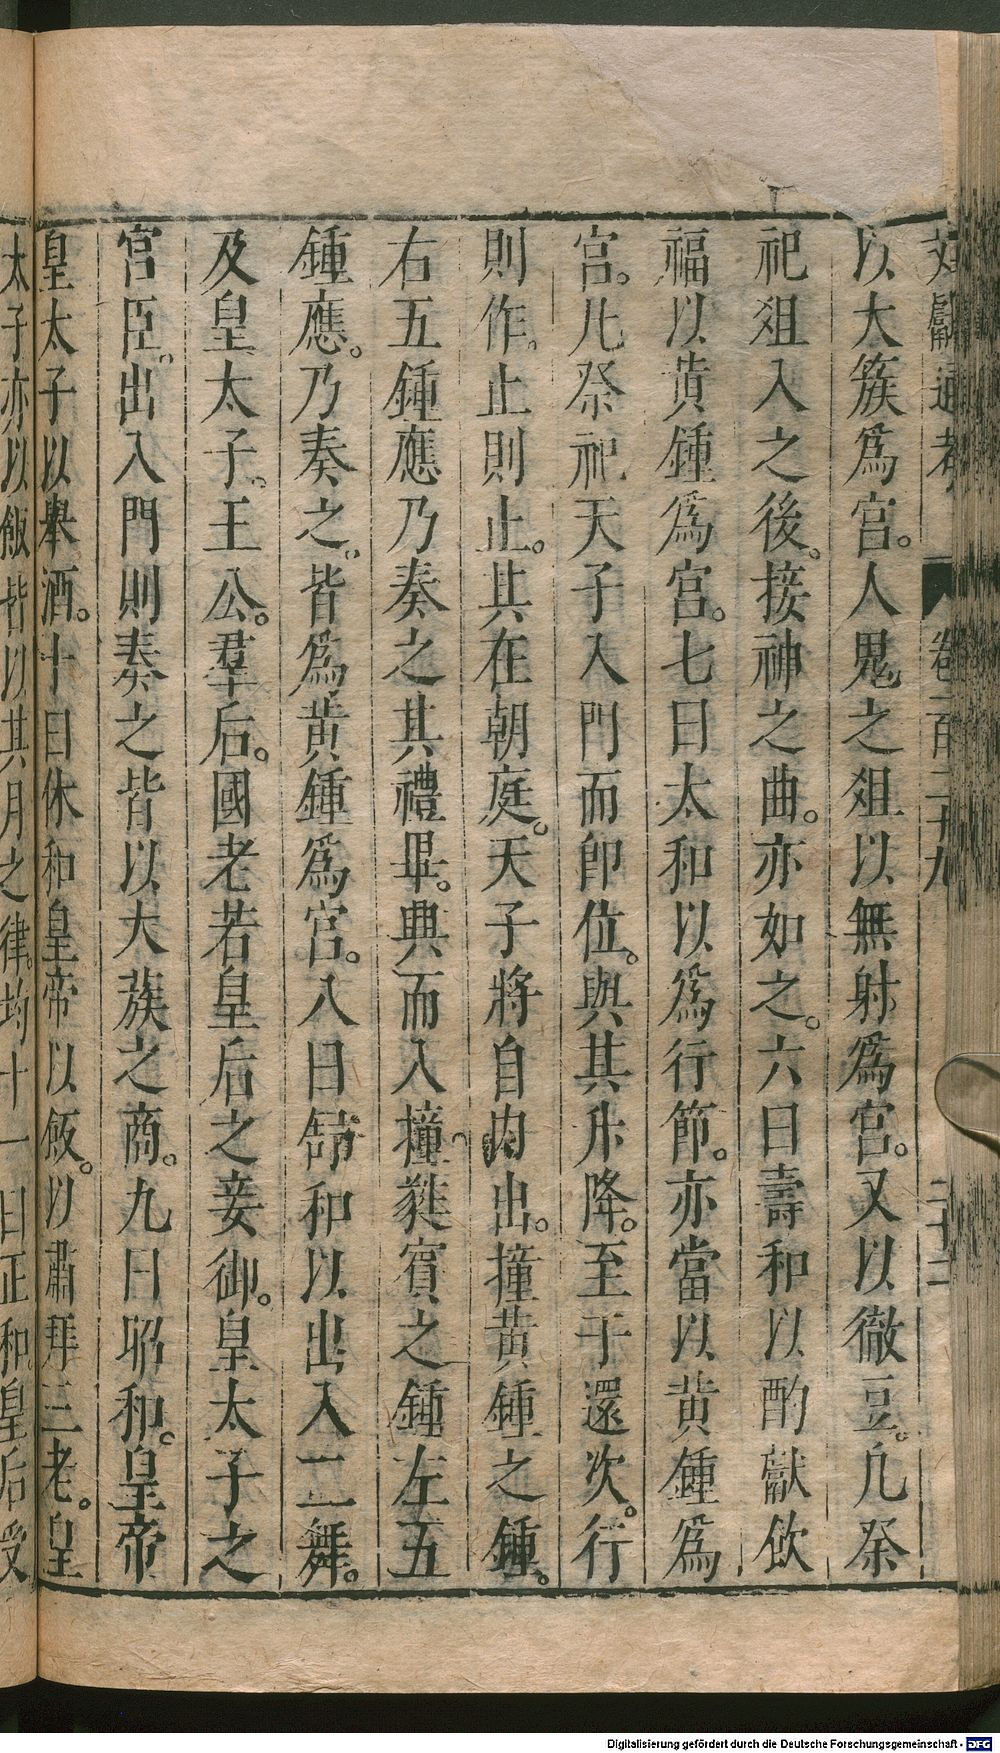 文獻通考 卷一百二十九 二十二
以大簇爲宮。人鬼之俎以無射爲宮。又以徹豆。凡祭
祀俎入之後。接神之曲。亦如之。六曰壽和以酌獻飲
福以黃鍾爲宮。七曰太和以爲行節。亦當以黃鍾爲
宮。凡祭祀天子入門而卽位。與其升降。至于還次。行
則作。止則止。其在朝庭。天子將自內出。撞黃鍾之鍾。
右五鍾應乃奏之其禮畢。興而入撞蕤賓之鍾左五
鍾應。乃奏之。皆爲黃鍾爲宮。八曰舒和以出入二舞。
及皇太子。王公。羣后。國老若皇后之妾御。皇太子之
宮臣。出入門則奏之皆以大蔟之商。九曰昭和。皇帝
皇太子以舉酒。十曰休和皇帝以飯。以肅拜三老。皇
太子亦以飯皆以其月之律均。十一曰正和。皇后受
Digitalisierung gefördert durch die Deutsche Forschungsgemeinschaft - DFG